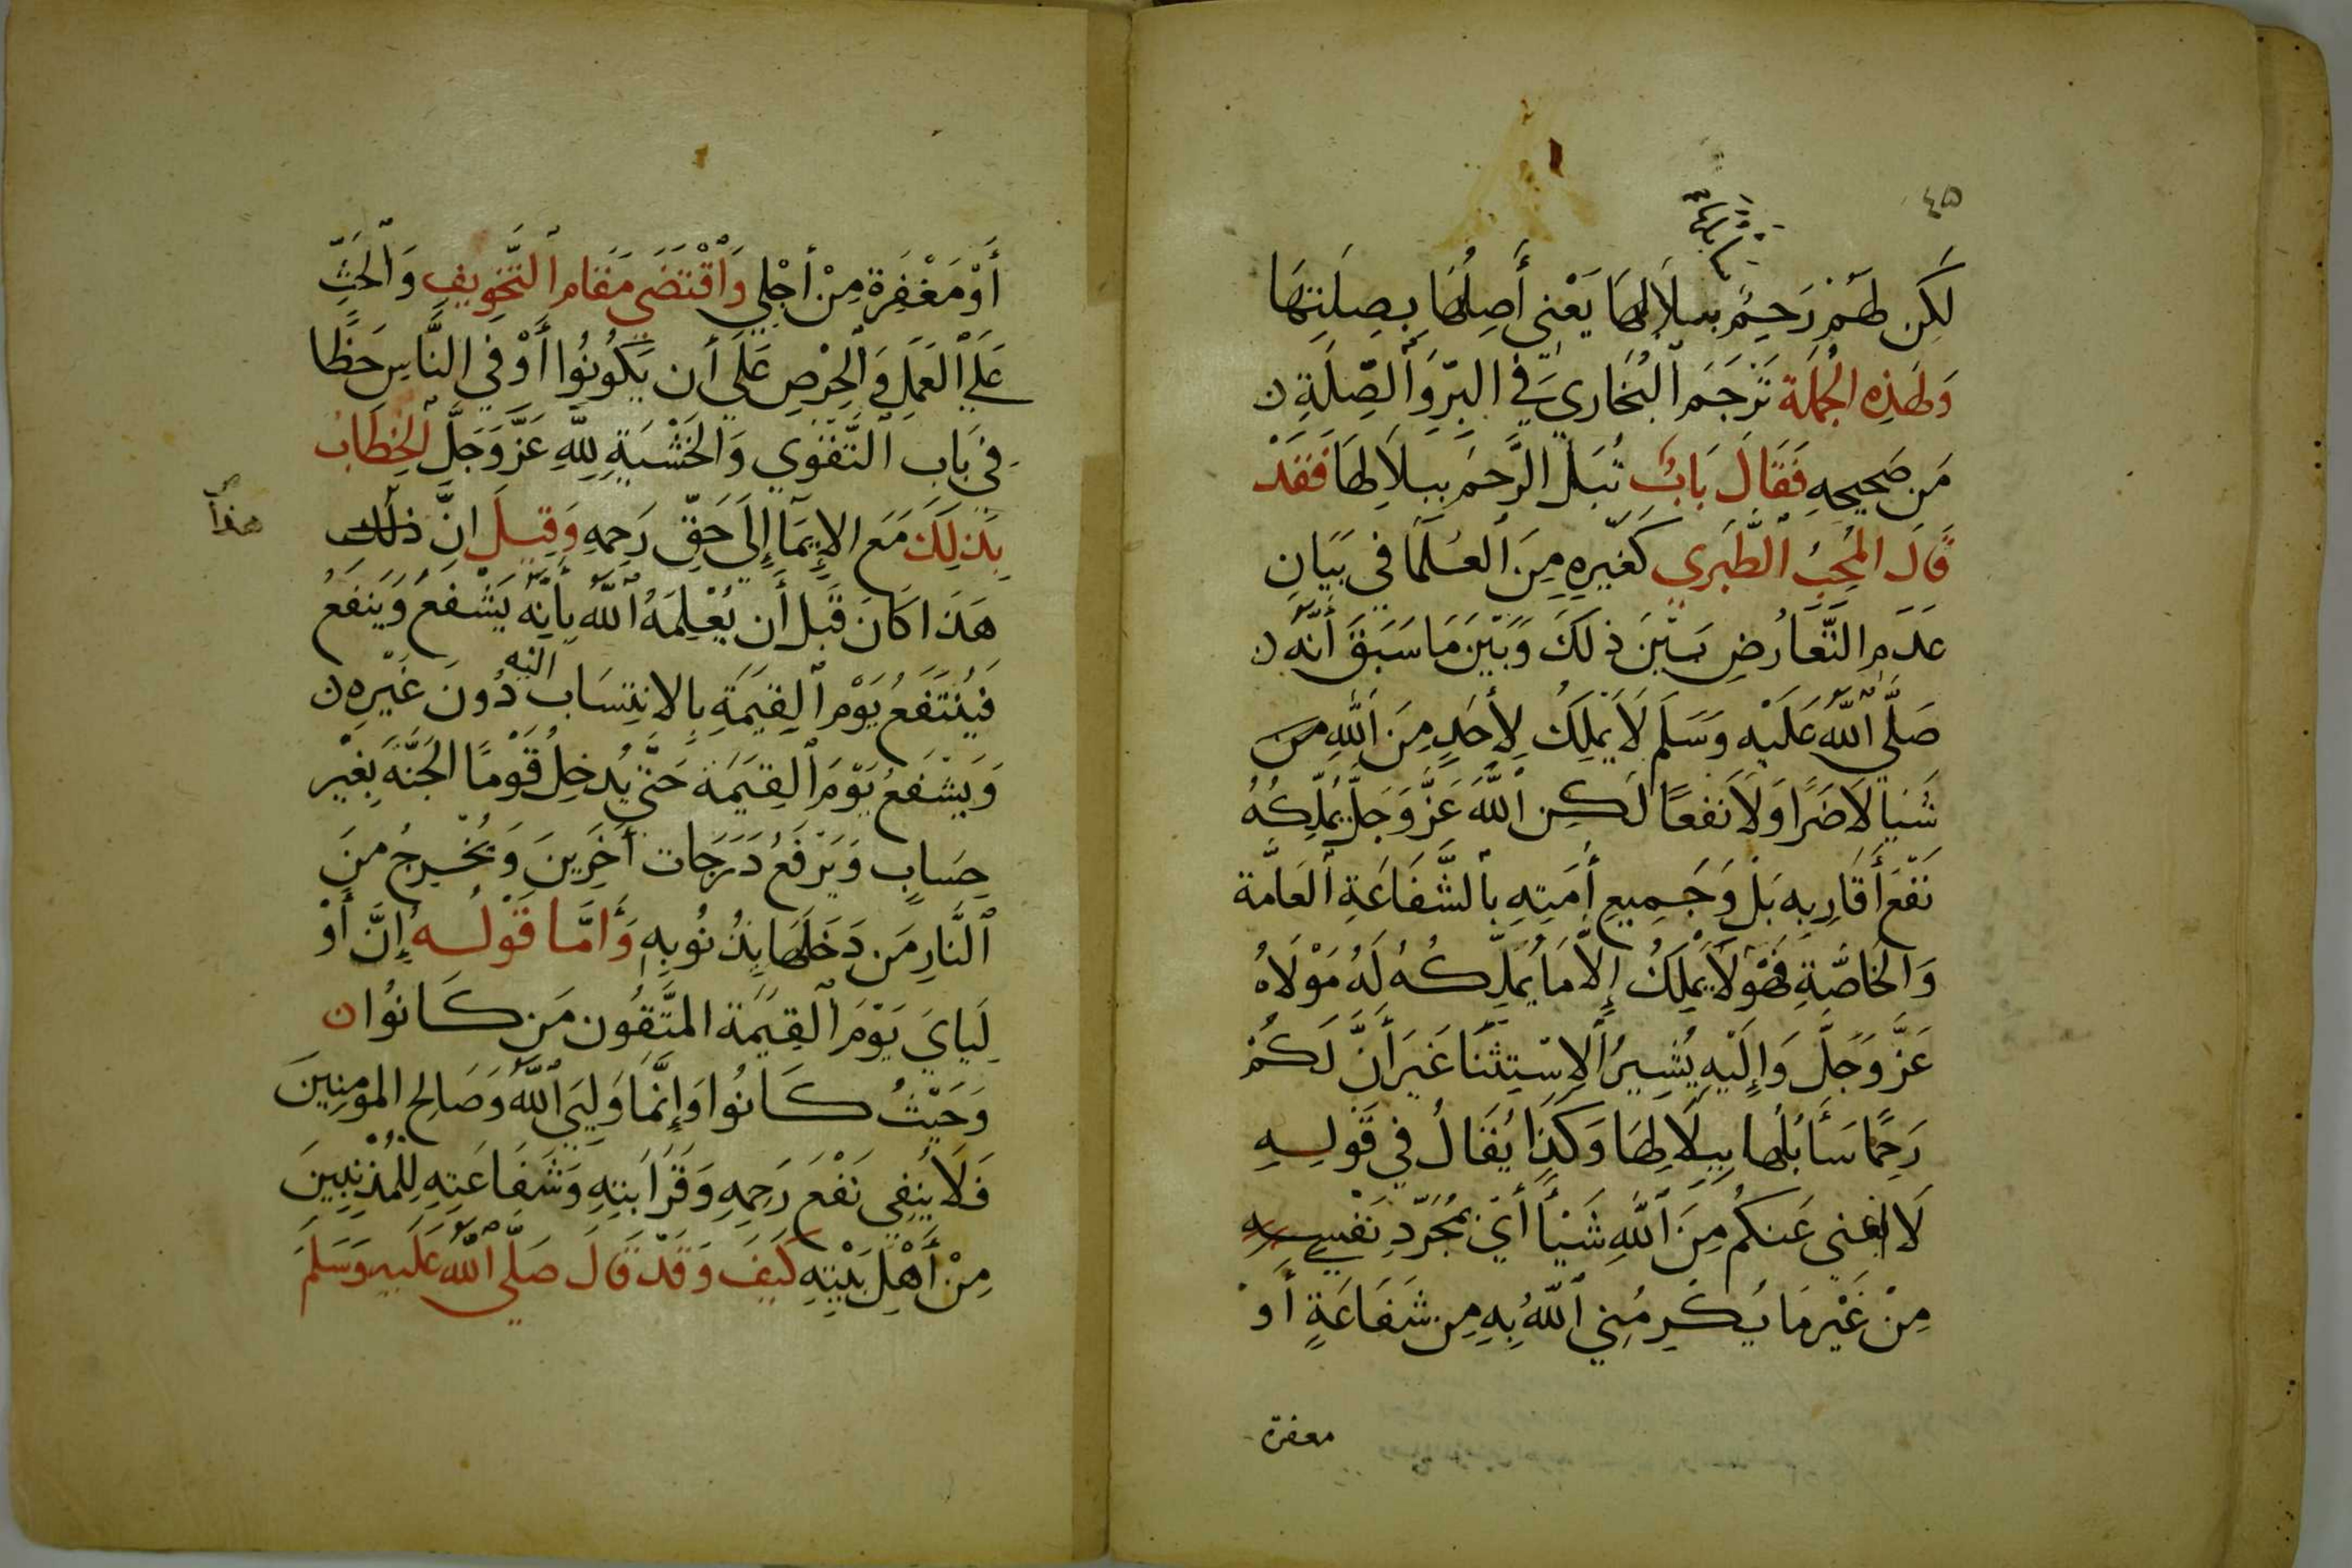 ٤٥
لَكِن لَهُمْ رَحِمٌ ببلالها يَعْنِي أَصِلُهَا بِصِلَتِهَا
وَلِهَذِهِ الجُمْلَة تَرْجَمَ ٱلبُخَارِي فِي البِرِّ وَٱلصِّلَةِ ن
مَن صَحِيحِهِ فَقَالَ بَابُ تُبَلُّ الرَّحِمَ بِبِلَالِهَا فَقَدْ
قَالَ المُحِبُّ ٱلطَّبَرِي كَغَيْرِهِ مِنَ ٱلعُلَمَا فِي بَيَانِ
عَدَمِ التَّعَارُضِ بَيْنَ ذلِكَ وَبَيْنَ مَا سَبَقَ أَنَّهُ ن
صَلَّى ٱللَّهُ عَلَيْهِ وَسَلَّمَ لَا يَمْلِكُ لِأَحَدٍ مِنَ ٱللَّهِ من
شَيْيا لَا ضَرًّا وَلَا نَفعًا لَكِن ٱللَّهَ عَزَّ وَجَلَّ يُمَلِّكُهُ
نَفْعَ أَقَارِبِهِ بَلْ وَجَمِيعِ أُمَّتِهِ بِٱلشَّفَاعَةِ ٱلعَامَّة
وَالخَاصَّةِ فَهُوَ لَا يَمْلِكُ إِلَّا مَا يُمَلِّكُهُ لَهُ مَوْلَاهُ
عَزَّ وَجَلَّ وَإِلَيْهِ يُشِيرُ ٱلِاسْتِثْنَا غَيرَ أَنَّ لَكُمْ
رَحِمًا سَأَبُلُّهَا بِبِلَالِهَا وَكَذَا يُقَالُ فِي قَولِهِ
لَا أغني عَنكُم مِنَ ٱللَّهِ شَيْأً أَيْ بِمُجَرَّدِ نَفْسِي
مِنْ غَيْرِ مَا يُكْرِمُنِي ٱللَّهُ بِهِ مِن شَفَاعَةٍ أَوْ
مغفرة
أَوْ مَغْفِرَة مِنْ أَجْلِي وَٱقْتَضَى مَقَام ٱلتَّخْوِيفِ وَٱلحَثِّ
عَلَى ٱلعَمَلِ وَٱلحِرْصِ عَلَى أَن يَكُونُوا أَوْفِي النَّاسِ حَظًّا
فِي بَاب ٱلتَّقْوَى وَالخَشْيَةِ لِلَّهِ عَزَّ وَجَلَّ ٱلخِطَابُ
بِذلِكَ مَعَ الإِيمَا إِلَى حَقِّ رَحِمِهِ وَقِيلَ انَّ ذلك
هذا
هَذَا كَانَ قَبْلَ أَن يُعْلِمَهُ ٱللَّهُ بِأَنَّهُ يَشْفَعُ وَيَنفَعُ
فَيُنْتَفَعُ يَوْمَ ٱلقِيَمَةِ بِالانتِسَاب اليه دُونَ غَيْرِهِ ن
وَيَشْفَعُ يَوْمَ ٱلقِيَمَة حَتَّى يُدخِلُ قَوْمًا الجَنَّةَ بِغَيْر
حِسَابٍ وَيَرْفَعُ دَرَجَات أخَرِينَ وَيُخْرِجُ مِنَ
ٱلنَّارِ مَن دَخَلَهَا بِذُنُوبِهِ وَأَمَّا قَوْلُهُ إِنَّ أَوْ
لِيَايَ يَوْمَ ٱلقِيَمَة المتَّقُون مَن كَانُوا ن
وَحَيْثُ كَانُوا وَإِنَّمَا وَلِيِّيَ ٱللَّهُ وَصَالِح المومِنِينَ
فَلَا يَنفِي نَفْعَ رَحِمِهِ وَقَرَابَتِهِ وَشَفَاعَتِهِ لِلْمُذنِبِينَ
مِنْ أَهْلِ بَيْتِهِ كَيْفَ وَقَدْ قَالَ صَلَّى ٱللَّهُ عَلَيْهِ وَسَلَّمَ